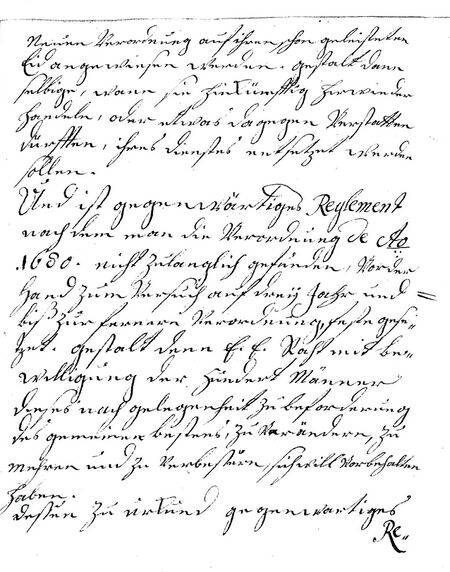 Neuen Verordnung auf ihren schon geleisteten
Eid angewiesen werden. gestalt dann
selbige, wann sie hinkünfftig hierwieder
handeln, oder etwas dagegen Verstatten
dürfften, ihres dienstes entsetzet werden
sollen.
Und ist gegenwärtiges Reglement
nach dem man die Verordnung de Ao
1680. nicht zulänglich gefunden, Vor der
Hand zum Versuch auf dreÿ Jahr und
biß zur fernern Verordnung, feste gese-
tzet. gestalt denn E. E. Raht mit be-
willigung der Hundert Männer
dieses nach gelegenheit zu beforderung
des gemeinen bestens, zu Verändern, zu
mehren und zu Verbeßern, sich will Vorbehalten
haben.
Dessen zu uhrkund gegenwärtiges
Re-